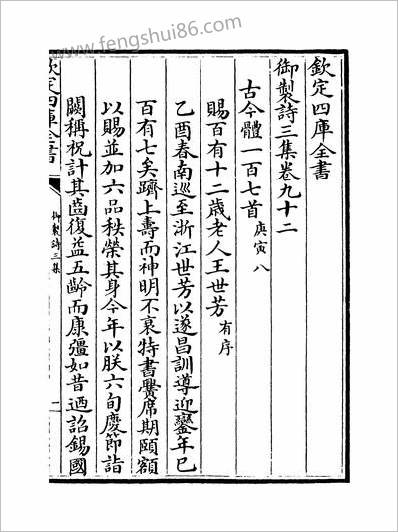 www.fengshui86.com
欽定四庫全書
御製詩三集卷九十二
古今體一百七首 庚寅八
賜百有十二歲老人王世芳 有序
乙酉春南巡至浙江世芳以遂昌訓導迎鑾年已
百有七矣躋上壽而神明不衰特書黌席期頤額
以賜並加六品秩榮其身今年以朕六旬慶節詣
闕稱祝計其齒復益五齡而康彊如昔迺詔錫國
欽定四庫全書
御製詩三集